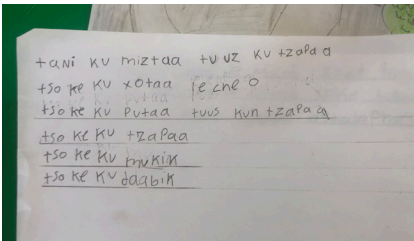 tani ku miztaa tuuz ku tzapaa
tso ke ku xotaa lecheo
tso ke ku putaa tuus kun tzapaa
tso ke ku tzapaa
tso ke ku mukik
tso ke ku daabik